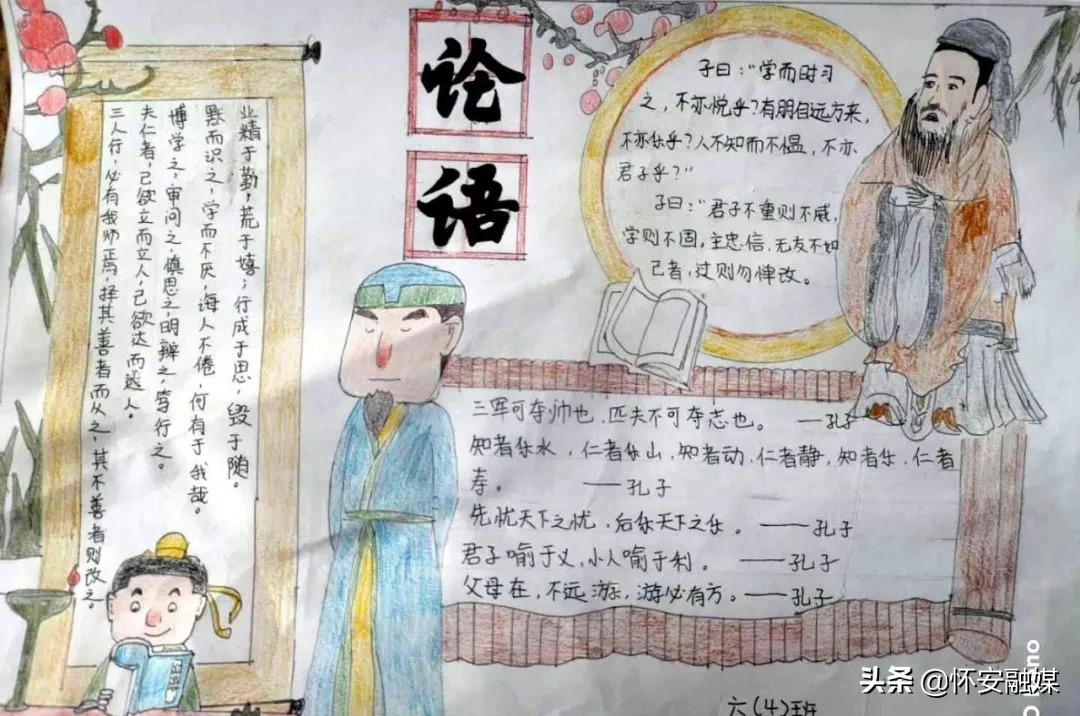 论
语
子曰：“学而时习
之，不亦悦乎？有朋自远方来，
不亦乐乎？人不知而不愠，不亦
君子乎？”
子曰：“君子不重则不威，
学则不固，主忠信，无友不如
己者，过则勿惮改。
业精于勤，荒于嬉；行成于思，毁于随。
默而识之，学而不厌，诲人不倦，何有于我哉。
博学之，审问之，慎思之，明辨之，笃行之。
夫仁者，己欲立而立人，己欲达而达人。
三人行，必有我师焉，择其善者而从之，其不善者则改之。
三军可夺帅也，匹夫不可夺志也。 ——孔子
知者乐水，仁者乐山，知者动，仁者静，知者乐，仁者
寿。 ——孔子
先忧天下之忧，后乐天下之乐。 ——孔子
君子喻于义，小人喻于利。 ——孔子
父母在，不远游，游必有方。——孔子
六(4)班
头条 @怀安融媒